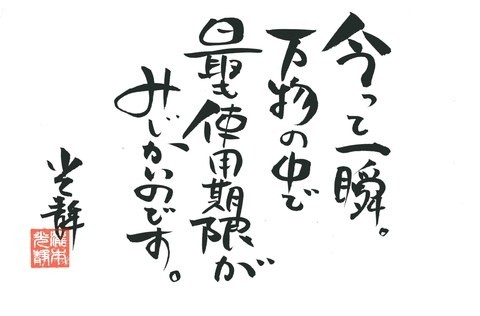 今って一瞬。
万物の中で
最も使用期限が
みじかいのです。
光静
瀧本
光静